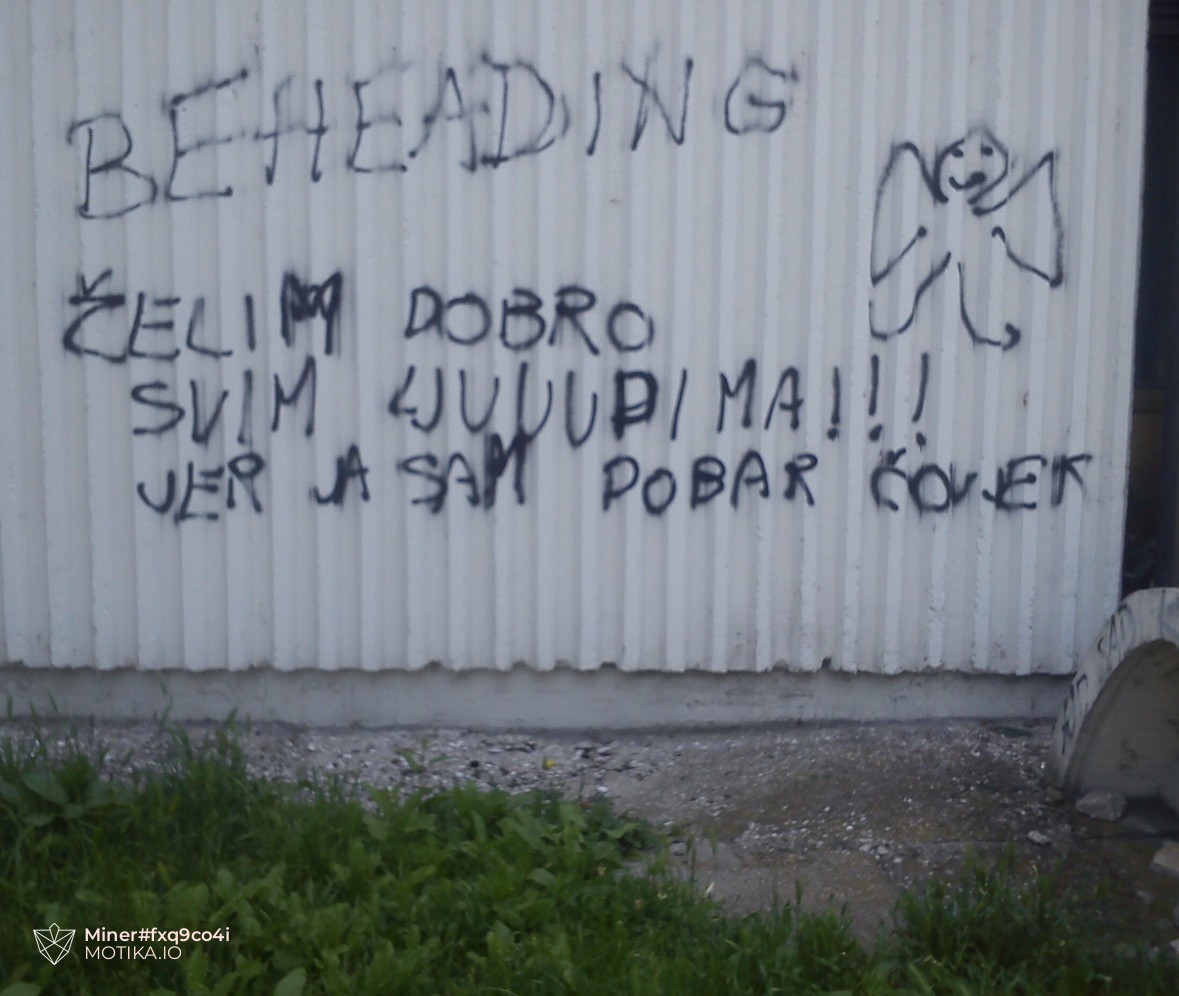 BEHEADING
ČELIM DOBRO
SVIM LJUUUDIMA!!!
JER JA SAM DOBAR ČOVJEK
Miner#fxq9co4i
MOTIKA.IO